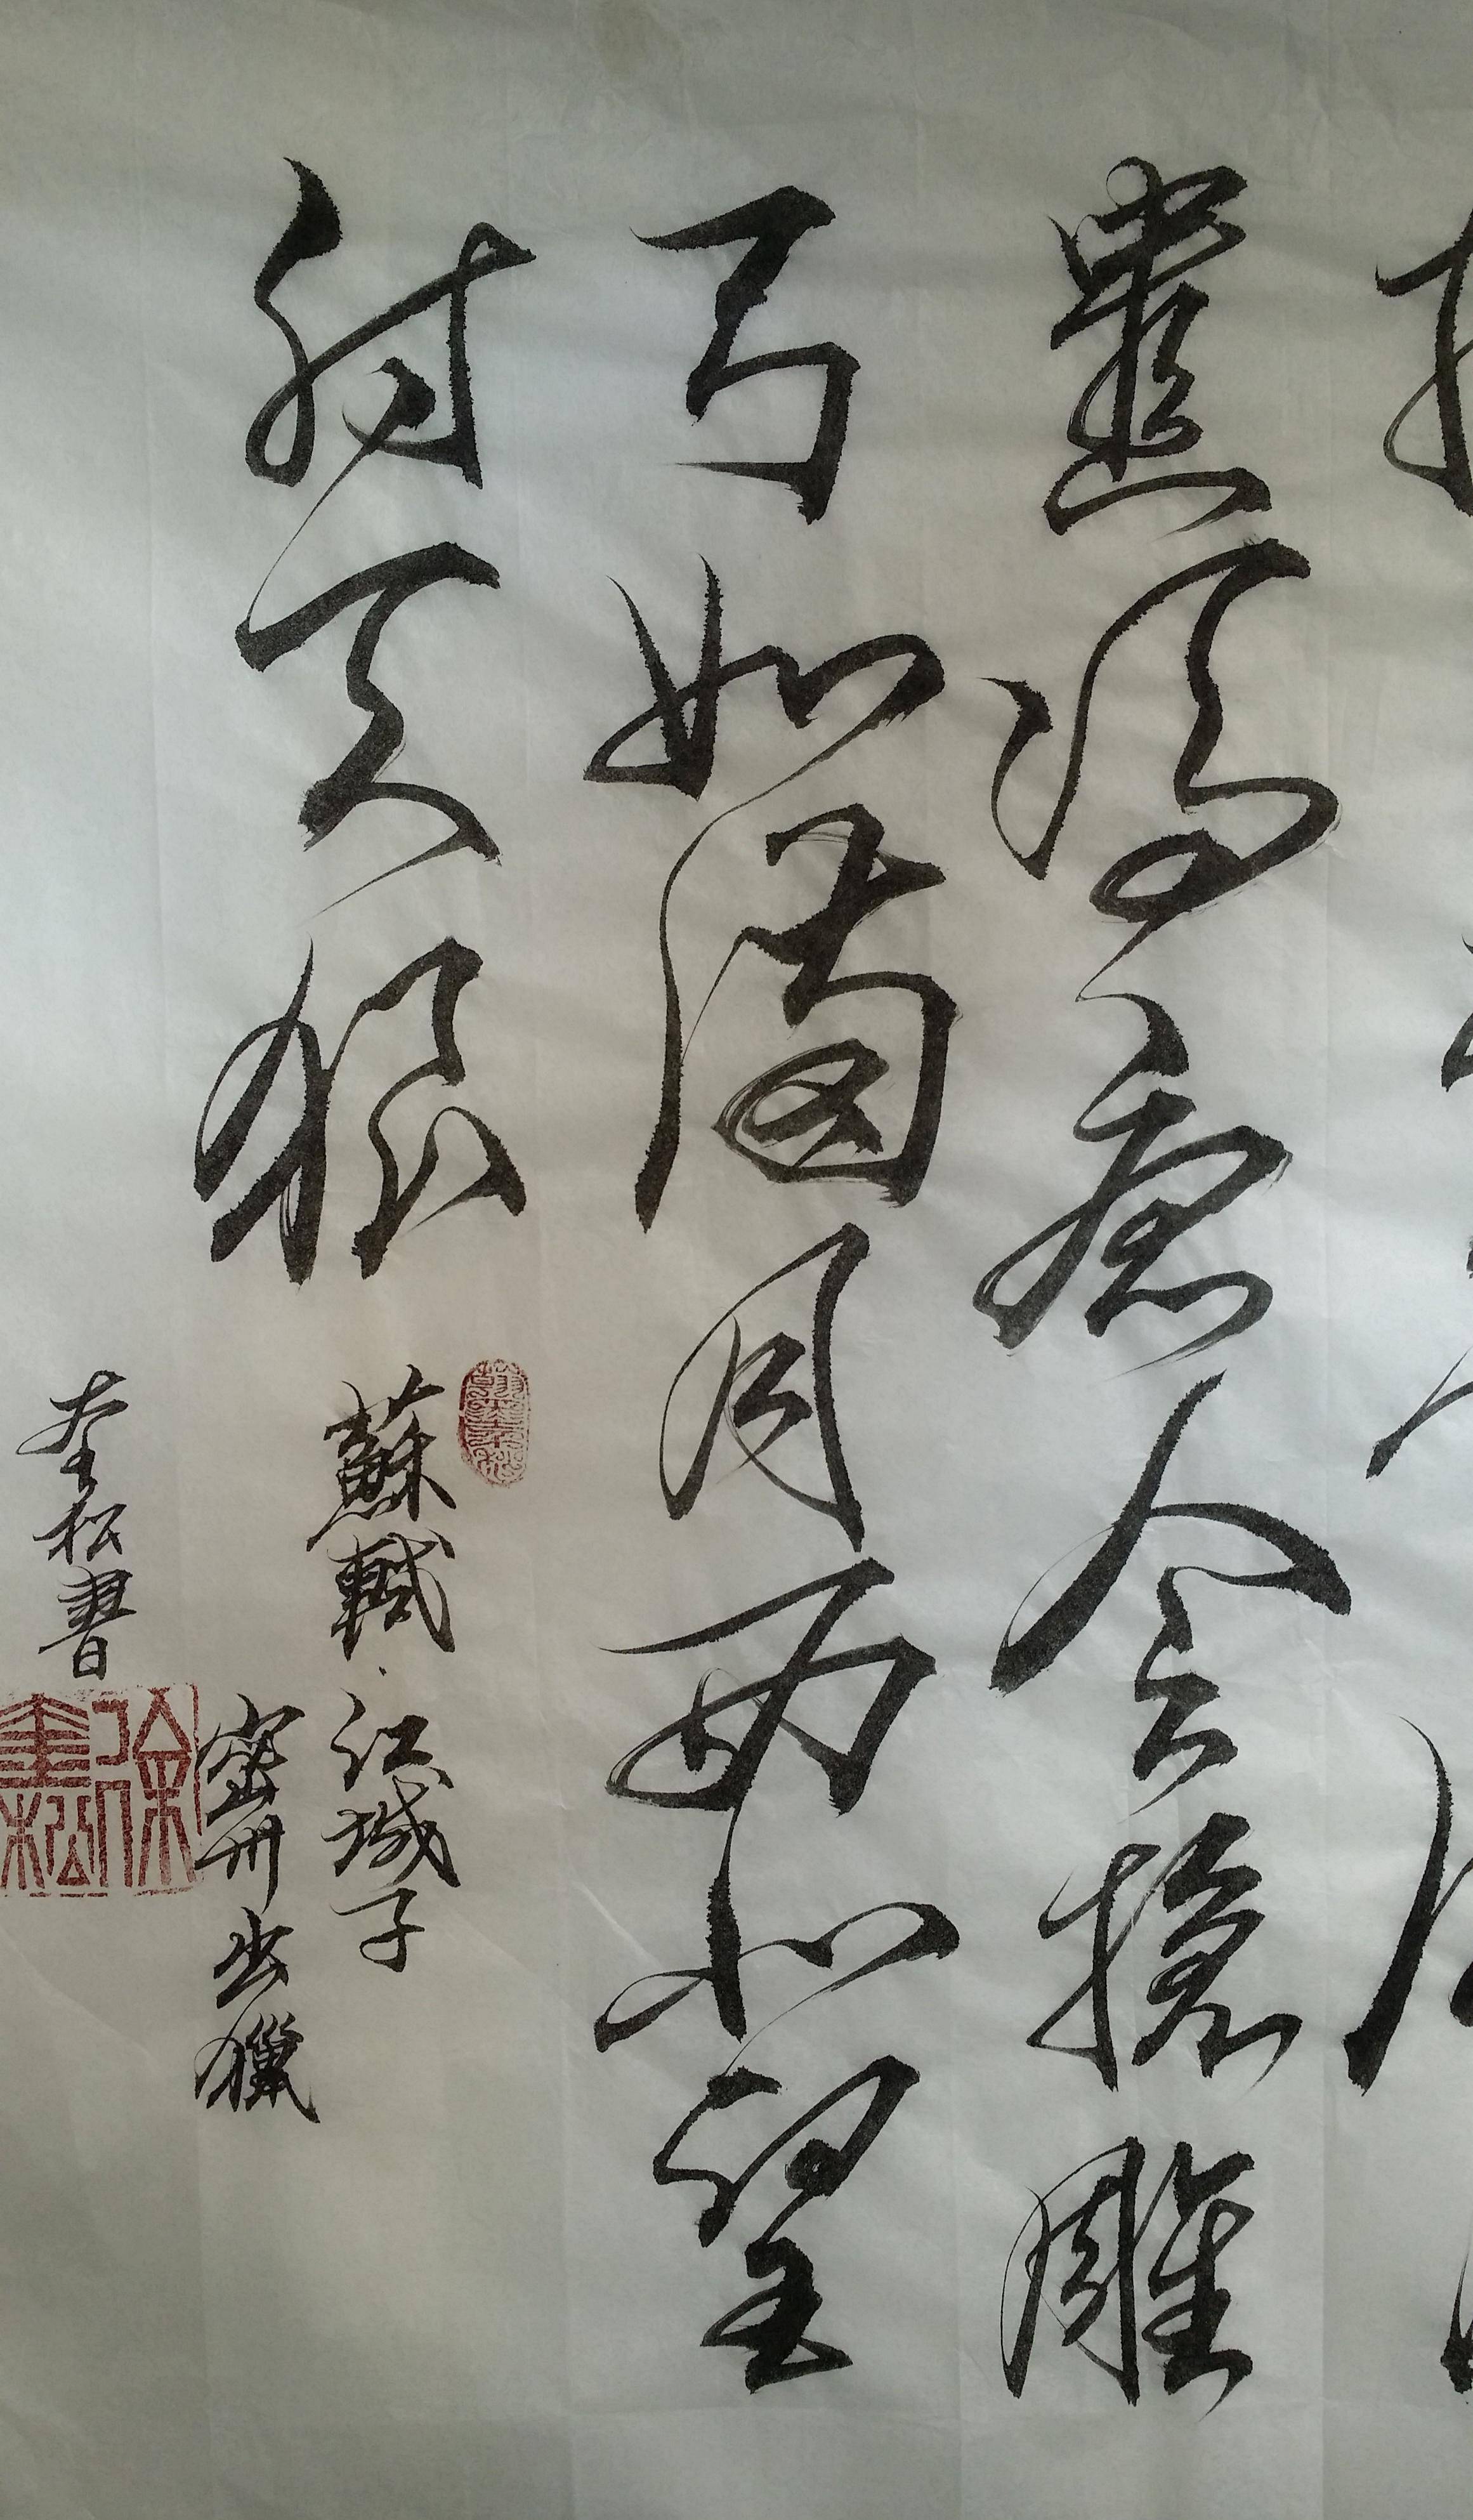 遣馮唐会挽雕
弓如滿月西北望
射天狼
蘇軾·江城子
密州出獵
奎松書